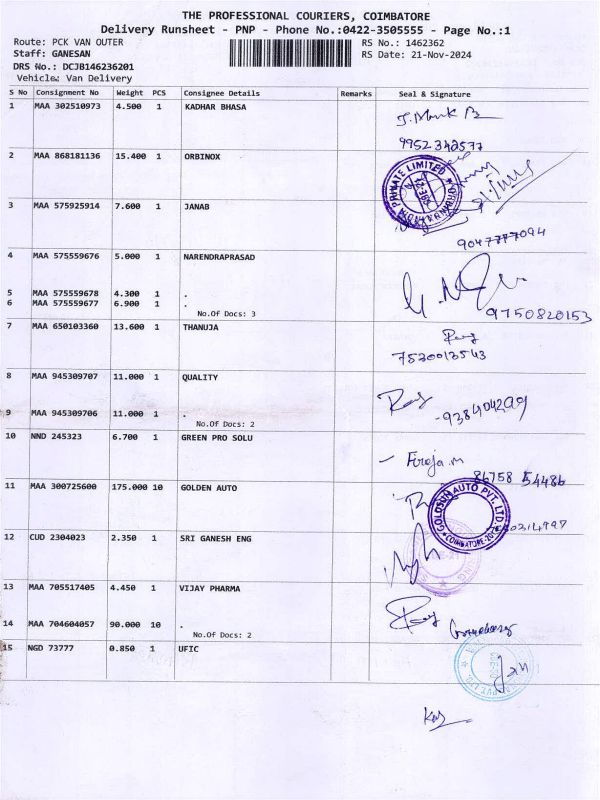 THE PROFESSIONAL COURIERS, COIMBATORE
Delivery Runsheet - PNP - Phone No.:0422-3505555 - Page No.:1
Route: PCK VAN OUTER RS No.: 1462362
Staff: GANESAN RS Date: 21-Nov-2024
DRS No.: DCJB146236201
Vehicle: Van Delivery
S No Consignment No Weight PCS Consignee Details Remarks Seal & Signature
1 MAA 302510973 4.500 1 KADHAR BHASA
9952342577
2 MAA 868181136 15.400 1 ORBINOX
PRIVATE LIMITED
3 MAA 575925914 7.600 1 JANAB
9047777094
4 MAA 575559676 5.000 1 NARENDRAPRASAD
5 MAA 575559678 4.300 1 .
6 MAA 575559677 6.900 1 .
9750820153
No.Of Docs: 3
7 MAA 650103360 13.600 1 THANUJA
7530013543
8 MAA 945309707 11.000 1 QUALITY
9 MAA 945309706 11.000 1 .
No.Of Docs: 2
10 NND 245323 6.700 1 GREEN PRO SOLU
Firoja.m
86758 54486
11 MAA 300725600 175.000 10 GOLDEN AUTO
GOLDSUN AUTO PVT. LTD.
COIMBATORE
12 CUD 2304023 2.350 1 SRI GANESH ENG
13 MAA 705517405 4.450 1 VIJAY PHARMA
14 MAA 704604057 90.000 10 .
No.Of Docs: 2
15 NGD 73777 0.850 1 UFIC